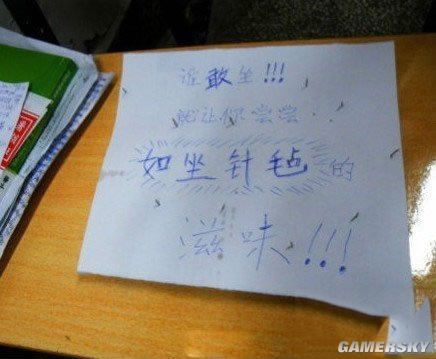 谁敢坐!!!
就让你尝尝...
如坐针毡的
滋味!!!
GAMERSKY